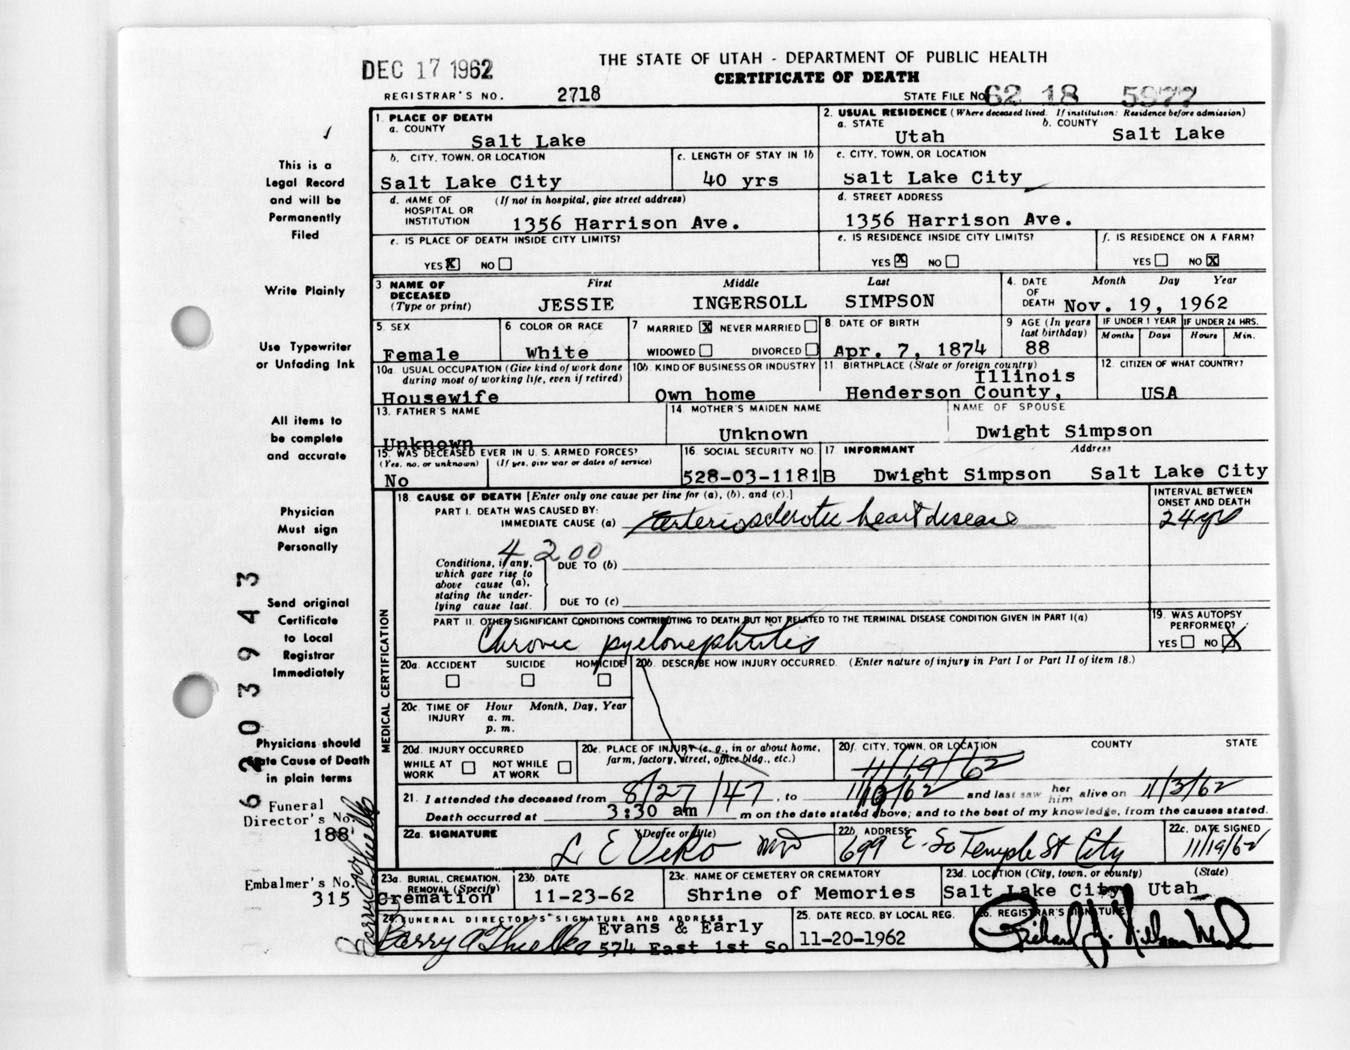 DEC 17 1962
THE STATE OF UTAH - DEPARTMENT OF PUBLIC HEALTH
CERTIFICATE OF DEATH
REGISTRAR'S NO. 2718
STATE FILE NO 62 18 5977
This is a
Legal Record
and will be
Permanently
Filed
Write Plainly
Use Typewriter
or Unfading Ink
All items to
be complete
and accurate
Physician
Must sign
Personally
Send original
Certificate
to Local
Registrar
Immediately
Physicians should
State Cause of Death
in plain terms
Funeral
Director's No.
188
Embalmer's No.
315
6203943
1. PLACE OF DEATH
a. COUNTY
Salt Lake
2. USUAL RESIDENCE (Where deceased lived. If institution: Residence before admission)
a. STATE b. COUNTY
Utah Salt Lake
b. CITY, TOWN, OR LOCATION c. LENGTH OF STAY IN 1b
Salt Lake City 40 yrs
c. CITY, TOWN, OR LOCATION
Salt Lake City
d. NAME OF (If not in hospital, give street address)
HOSPITAL OR
INSTITUTION 1356 Harrison Ave.
d. STREET ADDRESS
1356 Harrison Ave.
e. IS PLACE OF DEATH INSIDE CITY LIMITS?
YES X NO
e. IS RESIDENCE INSIDE CITY LIMITS? f. IS RESIDENCE ON A FARM?
YES X NO YES NO X
3 NAME OF First Middle Last
DECEASED
(Type or print) JESSIE INGERSOLL SIMPSON
4. DATE Month Day Year
OF
DEATH Nov. 19, 1962
5. SEX
Female
6 COLOR OR RACE
White
7 MARRIED X NEVER MARRIED
WIDOWED DIVORCED
8. DATE OF BIRTH
Apr. 7, 1874
9 AGE (In years
last birthday)
88
IF UNDER 1 YEAR IF UNDER 24 HRS.
Months Days Hours Min.
10a. USUAL OCCUPATION (Give kind of work done
during most of working life, even if retired)
Housewife
10b. KIND OF BUSINESS OR INDUSTRY
Own home
11. BIRTHPLACE (State or foreign country)
Illinois
Henderson County,
12. CITIZEN OF WHAT COUNTRY?
USA
13. FATHER'S NAME
Unknown
14 MOTHER'S MAIDEN NAME
Unknown
NAME OF SPOUSE
Dwight Simpson
15. WAS DECEASED EVER IN U. S. ARMED FORCES?
(Yes, no, or unknown) (If yes, give war or dates of service)
No
16. SOCIAL SECURITY NO.
528-03-1181B
17. INFORMANT Address
Dwight Simpson Salt Lake City
MEDICAL CERTIFICATION
18. CAUSE OF DEATH [Enter only one cause per line for (a), (b), and (c).]
PART I. DEATH WAS CAUSED BY:
IMMEDIATE CAUSE (a) Arteriosclerotic heart disease
INTERVAL BETWEEN
ONSET AND DEATH
24 yrs
4200
Conditions, if any,
which gave rise to
above cause (a),
stating the under-
lying cause last.
DUE TO (b)
DUE TO (c)
PART II. OTHER SIGNIFICANT CONDITIONS CONTRIBUTING TO DEATH BUT NOT RELATED TO THE TERMINAL DISEASE CONDITION GIVEN IN PART I(a)
Chronic pyelonephritis
19. WAS AUTOPSY
PERFORMED?
YES NO X
20a. ACCIDENT SUICIDE HOMICIDE
20b. DESCRIBE HOW INJURY OCCURRED. (Enter nature of injury in Part I or Part II of item 18.)
20c. TIME OF Hour Month, Day, Year
INJURY a. m.
p. m.
20d. INJURY OCCURRED
WHILE AT NOT WHILE
WORK AT WORK
20e. PLACE OF INJURY (e. g., in or about home,
farm, factory, street, office bldg., etc.)
20f. CITY, TOWN, OR LOCATION COUNTY STATE
11/19/62
21. I attended the deceased from 8/27/47, to 11/19/62 and last saw her him alive on 11/3/62
Death occurred at 3:30 am m on the date stated above; and to the best of my knowledge, from the causes stated.
22a. SIGNATURE (Degree or title)
L E Viko MD
22b. ADDRESS
699 E. So Temple St City
22c. DATE SIGNED
11/19/62
23a. BURIAL, CREMATION,
REMOVAL (Specify)
Cremation
23b. DATE
11-23-62
23c. NAME OF CEMETERY OR CREMATORY
Shrine of Memories
23d. LOCATION (City, town, or county) (State)
Salt Lake City Utah
24. FUNERAL DIRECTOR'S SIGNATURE AND ADDRESS
Evans & Early
574 East 1st So
25. DATE RECD. BY LOCAL REG.
11-20-1962
26. REGISTRAR'S SIGNATURE